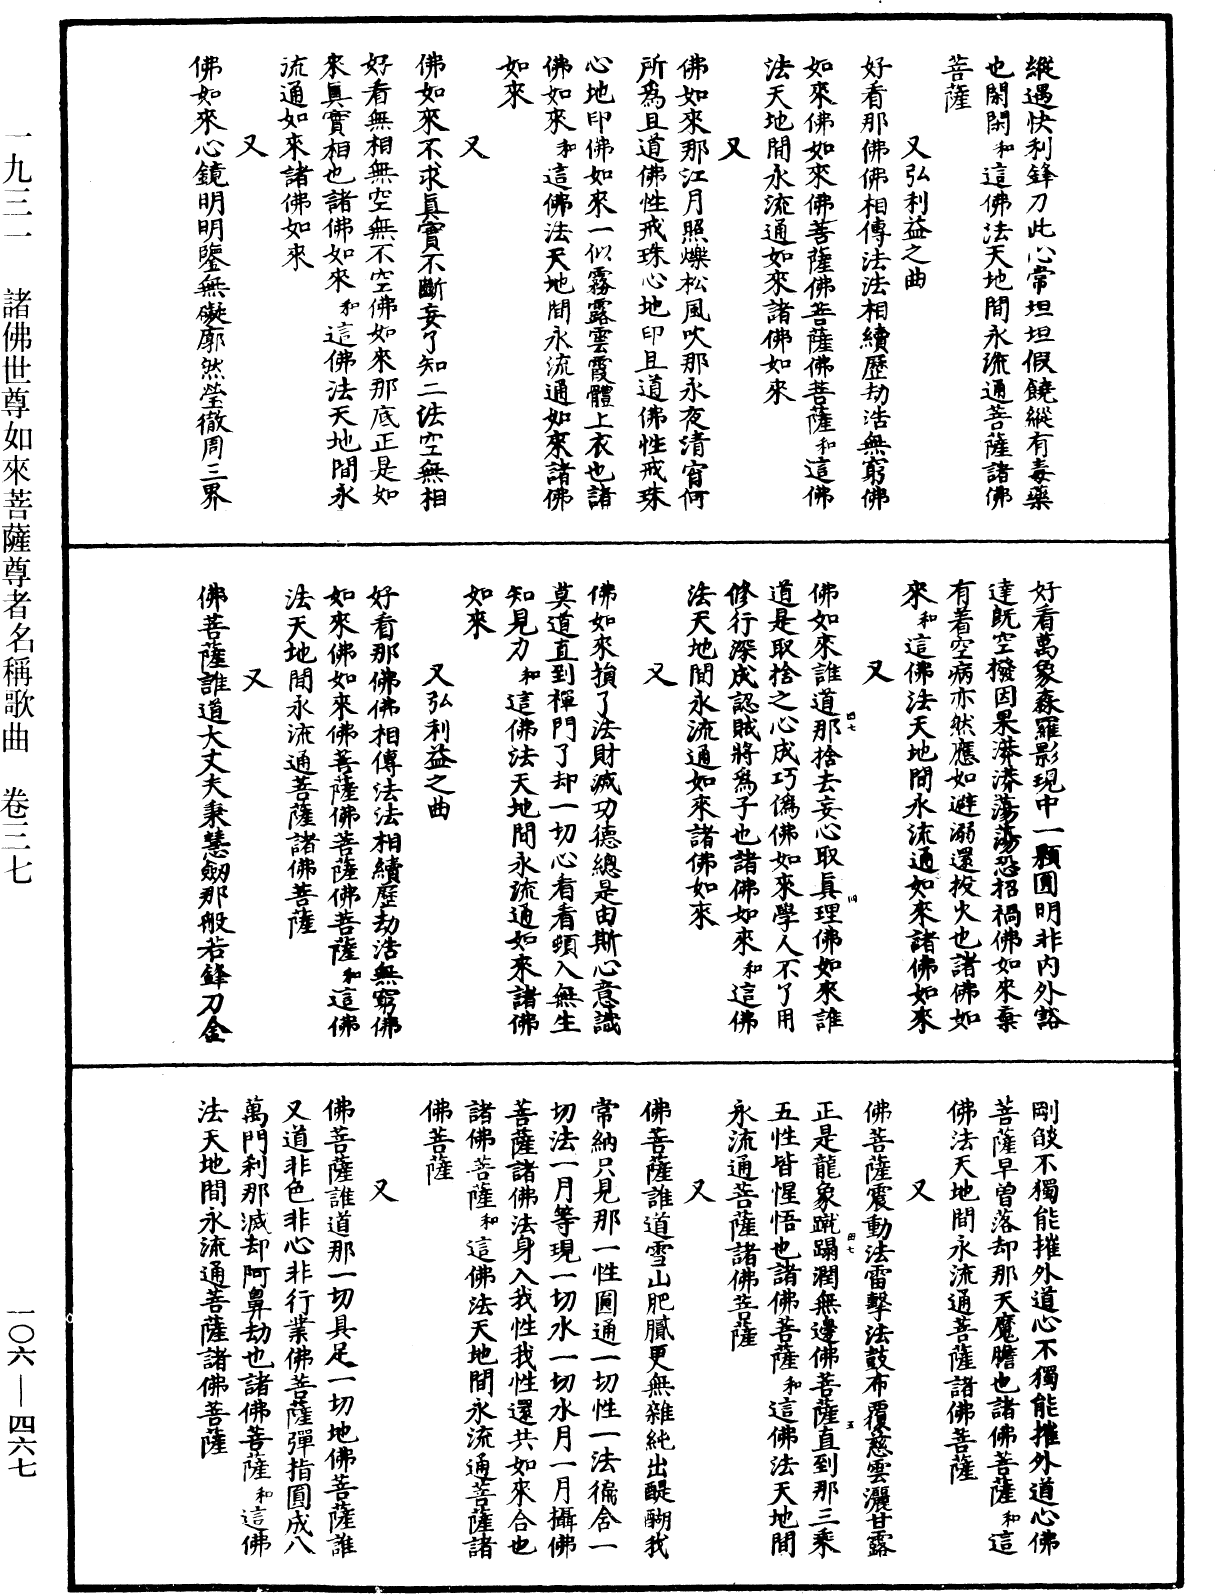 縱遇快利鋒刀此心常坦坦假饒縱有毒藥
也閑閑和這佛法天地間永流通菩薩諸佛
菩薩
又弘利益之曲
好看那佛佛相傳法法相續歷劫浩無窮佛
如來佛如來佛菩薩佛菩薩佛菩薩和這佛
法天地間永流通如來諸佛如來
又
佛如來那江月照爍松風吹那永夜清宵何
所為且道佛性戒珠心地印且道佛性戒珠
心地印佛如來一似霧露雲霞體上衣也諸
佛如來和這佛法天地間永流通如來諸佛
如來
又
佛如來不求真實不斷妄了知二法空無相
好看無相無空無不空佛如來那底正是如
來真實相也諸佛如來和這佛法天地間永
流通如來諸佛如來
又
佛如來心鏡明明鑒無礙廓然瑩徹周三界
好看萬象森羅影現中一顆圓明非內外豁
達既空撥因果漭漭蕩蕩恐招禍佛如來棄
有着空病亦然應如避溺還投火也諸佛如
來和這佛法天地間永流通如來諸佛如來
又
佛如來誰道那捨去妄心取真理佛如來誰
道是取捨之心成巧偽佛如來學人不了用
修行深成認賊將為子也諸佛如來和這佛
法天地間永流通如來諸佛如來
又
佛如來損了法財滅功德總是由斯心意識
莫道直到禪門了却一切心看看頓入無生
知見力和這佛法天地間永流通如來諸佛
如來
又弘利益之曲
好看那佛佛相傳法法相續歷劫浩無窮佛
如來佛如來佛菩薩佛菩薩佛菩薩和這佛
法天地間永流通菩薩諸佛菩薩
又
佛菩薩誰道大丈夫秉慧劒那般若鋒刀金
剛燄不獨能摧外道心不獨能摧外道心佛
菩薩早曾落却那天魔膽也諸佛菩薩和這
佛法天地間永流通菩薩諸佛菩薩
又
佛菩薩震動法雷擊法鼓布覆慈雲灑甘露
正是龍象蹴蹋潤無邊佛菩薩直到那三乘
五性皆惺悟也諸佛菩薩和這佛法天地間
永流通菩薩諸佛菩薩
又
佛菩薩誰道雪山肥膩更無雜純出醍醐我
常納只見那一性圓通一切性一法徧含一
切法一月等現一切水一切水月一月攝佛
菩薩諸佛法身入我性我性還共如來合也
諸佛菩薩和這佛法天地間永流通菩薩諸
佛菩薩
又
佛菩薩誰道那一切具足一切地佛菩薩誰
又道非色非心非行業佛菩薩彈指圓成八
萬門刹那滅却阿鼻劫也諸佛菩薩和這佛
法天地間永流通菩薩諸佛菩薩
一九三一 諸佛世尊如來菩薩尊者名稱歌曲 卷三七
一〇六—四六七